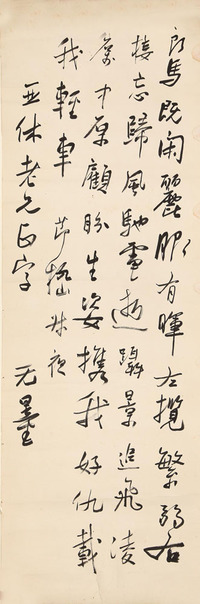 良馬既閑麗服有暉左攬繁弱右
接忘歸風馳電逝躡景追飛凌
厲中原顧盼生姿攜我好仇載
我輕車 節嵇叔夜
亚休老兄正字 无量